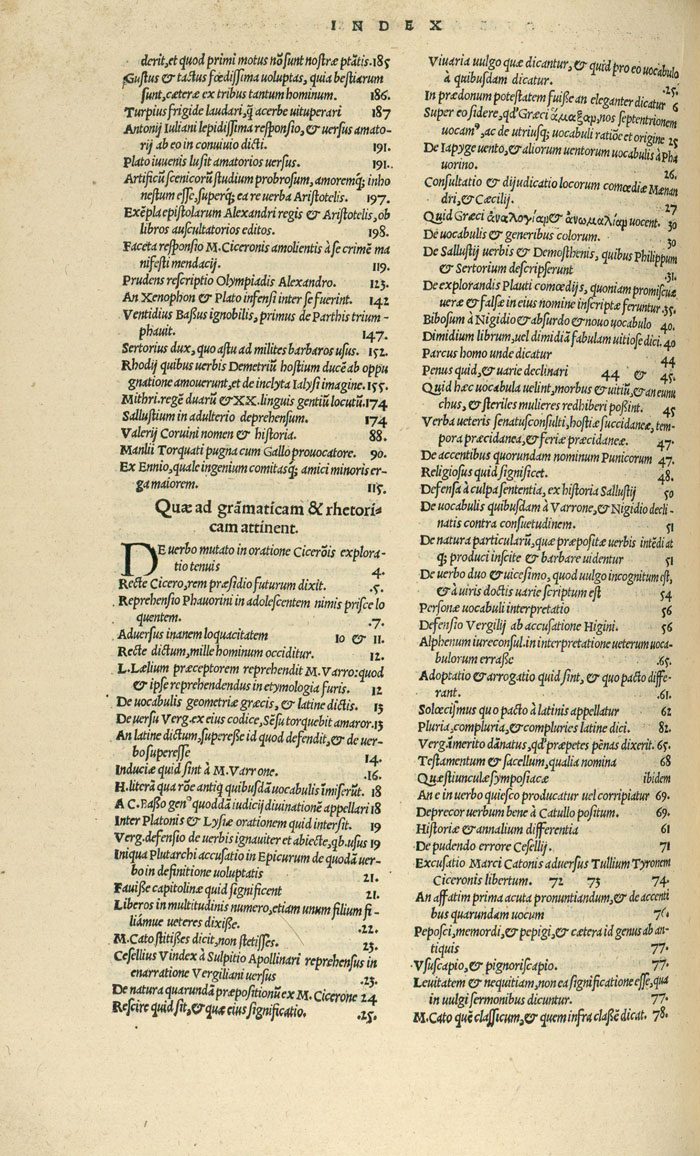 INDEX
derit, et quod primi motus nõ sunt nostræ ptãtis. 185
Gustus & tactus fœdissima voluptas, quia bestiarum
sunt, cæteræ ex tribus tantum hominum. 186.
Turpius frigide laudari, q̃ acerbe uituperari 187
Antonij Iuliani lepidissima responsio, & uersus amato-
rij ab eo in conuiuio dicti. 191.
Plato iuuenis lusit amatorios versus. 191.
Artificũ scenicorũ studium probrosum, amoremq; inho
nestum esse, superq; ea re uerba Aristotelis. 197.
Exẽpla epistolarum Alexandri regis & Aristotelis, ob
libros auscultatorios editos. 198.
Faceta responsio M. Ciceronis amolientis à se crimẽ ma
nifesti mendacij. 119.
Prudens rescriptio Olympiadis Alexandro. 123.
An Xenophon & Plato infensi inter se fuerint. 142
Ventidius Bassus ignobilis, primus de Parthis trium-
phauit. 147.
Sertorius dux, quo astu ad milites barbaros usus. 152.
Rhodij quibus verbis Demetriũ hostium ducẽ ab oppu
gnatione amouerunt, et de inclyta Ialysi imagine. 155.
Mithri. regẽ duarũ & XX. linguis gentiũ locutũ. 174
Sallustium in adulterio deprehensum. 174
Valerij Coruini nomen & historia. 88.
Manlii Torquati pugna cum Gallo prouocatore. 90.
Ex Ennio, quale ingenium comitasq; amici minoris er-
ga maiorem. 115.
Quæ ad grãmaticam & rhetori-
cam attinent.
DE uerbo mutato in oratione Cicerõis explora-
tio tenuis 4.
Recte Cicero, rem præsidio futurum dixit. .5.
Reprehensio Phauorini in adolescentem nimis prisce lo
quentem. .7.
Aduersus inanem loquacitatem 10 & 11.
Recte dictum, mille hominum occiditur. 12.
L. Lælium præceptorem reprehendit M. Varro: quod
& ipse reprehendendus in etymologia furis. 12
De vocabulis geometriæ græcis, & latine dictis. 13
De uersu Verg. ex eius codice, Sẽsu torquebit amaror. 13
An latine dictum, superesse id quod defendit, & de uer-
bo superesse 14.
Induciæ quid sint à M. Varrone. .16.
H. literã qua rõe antiq quibusdã uocabulis ĩmiserũt. 18
A C. Basso genꝰ quoddã iudicij diuinationẽ appellari 18
Inter Platonis & Lysiæ orationem quid intersit. 19
Verg. defensio de uerbis ignauiter et abiecte, qb. usus 19
Iniqua Plutarchi accusatio in Epicurum de quodã uer-
bo in definitione uoluptatis 21.
Fauissæ capitolinæ quid significent 21.
Liberos in multitudinis numero, etiam unum filium fi-
liámue ueteres dixisse. .22.
M. Cato stitisses dicit, non stetisses. 23.
Cesellius Vindex à Sulpitio Apollinari reprehensus in
enarratione Vergiliani uersus .23.
De natura quarundã præpositionũ ex M. Cicerone 24.
Rescire quid sit, & quæ eius significatio. .25.
Viuaria uulgo quæ dicantur, & quid pro eo uocabulo
à quibusdam dicatur. .25.
In prædonum potestatem fuisse an eleganter dicatur 6
Super eo sidere, qd' Græci ἅμαξαρ, nos septentrionem
uocamꝰ, ac de utriusq; uocabuli ratiõe et origine 25
De Iapyge uento, & aliorum uentorum uocabulis à Pha
uorino. 26.
Consultatio & dijudicatio locorum comœdiæ Mænan
dri, & Cæcilij. 27
Quid Græci ἀναλογίαρ & ἀνωμαλίαρ uocent. 30
De uocabulis & generibus colorum. 30
De Sallustij uerbis & Demosthenis, quibus Philippum
& Sertorium descripserunt .31.
De explorandis Plauti comœdijs, quoniam promiscuæ
ueræ & falsæ in eius nomine inscriptæ feruntur. 35.
Bibosum à Nigidio & absurdo & nouo uocabulo 40.
Dimidium librum, uel dimidiã fabulam uitiose dici. 40
Parcus homo unde dicatur 44
Penus quid, & uarie declinari 44 & 45.
Quid hæc uocabula uelint, morbus & uitiũ, & an eunu
chus, & steriles mulieres redhiberi possint. 45
Verba ueteris senatusconsulti, hostiæ succidaneæ, tem-
pora præcidanea, & feriæ præcidaneæ. 47.
De accentibus quorundam nominum Punicorum 47.
Religiosus quid significet. 48.
Defensa à culpa sententia, ex historia Sallustij 50
De uocabulis quibusdam à Varrone, & Nigidio decli-
natis contra consuetudinem. 51
De natura particularũ, quæ præpositæ uerbis intẽdi at
q; produci inscite & barbare uidentur 51
De uerbo duo & uicesimo, quod uulgo incognitum est,
& à uiris doctis uarie scriptum est 54
Personæ uocabuli interpretatio 56
Defensio Vergilij ab accusatione Higini. 56
Alphenum iureconsul. in interpretatione ueterum uoca-
bulorum errasse .65.
Adoptatio & arrogatio quid sint, & quo pacto diffe-
rant. .61.
Solœcismus quo pacto à latinis appellatur 62
Pluria, compluria, & compluries latine dici. 82.
Vergã merito dãnatus, qd' præpetes pẽnas dixerit. 65.
Testamentum & sacellum, qualia nomina 68
Quæstiunculæ symposiacæ ibidem
An e in uerbo quiesco producatur uel corripiatur 69.
Deprecor uerbum bene à Catullo positum. 69.
Historiæ & annalium differentia 61
De pudendo errore Cesellij. 71
Excusatio Marci Catonis aduersus Tullium Tyronem
Ciceronis libertum. 72 73 74.
An affatim prima acuta pronuntiandum, & de accenti
bus quarundam uocum 76.
Peposci, memordi, & pepigi, & cætera id genus ab an-
tiquis 77.
Vsuscapio, & pignoriscapio. 77.
Leuitatem & nequitiam, non ea significatione esse, qua
in uulgi sermonibus dicuntur. 77.
M. Cato quẽ classicum, & quem infra classẽ dicat. 78.